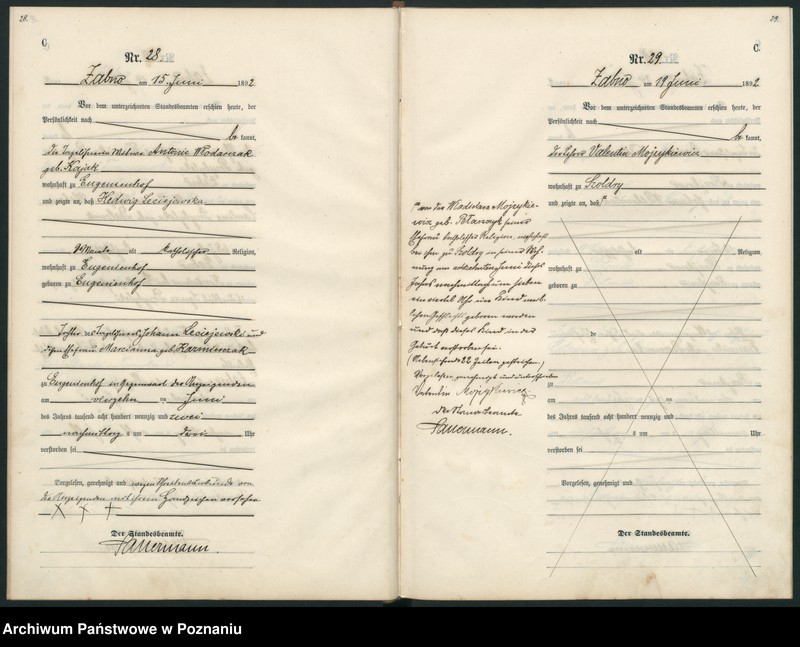 28.
C.
Nr. 28
Żabno am 15. Juni 1892
Vor dem unterzeichneten Standesbeamten erschien heute, der
Persönlichkeit nach
kannt,
Antonie Włodarczak
geb. Kajak
wohnhaft zu Eugenienhof
und zeigte an, daß Hedwig Leciejewska
alt katholischer Religion,
wohnhaft zu Eugenienhof
geboren zu Eugenienhof
Tochter des Johann Leciejewski und
Marcianna geb. Kazmierczak
zu Eugenienhof in Gegenwart des Anzeigenden
am vierzehn ten Juni
des Jahres tausend acht hundert neunzig und zwei
nachmittag s um drei Uhr
verstorben sei
Vorgelesen, genehmigt und wegen Schreibensunkunde von
der Anzeigenden mit ihrem Handzeichen versehen
Der Standesbeamte.
Sauermann.
29.
C.
Nr. 29
Żabno am 19 Juni 1892
Vor dem unterzeichneten Standesbeamten erschien heute, der
Persönlichkeit nach
kannt,
Valentin Mojzykiewicz
wohnhaft zu Szoldry
und zeigte an, daß
alt Religion,
wohnhaft zu
geboren zu
de
zu
am ten
des Jahres tausend acht hundert neunzig und
s um Uhr
verstorben sei
Vorgelesen, genehmigt und
Der Standesbeamte.
von der Wladislawa Mojzykie-
wicz geb. seiner
Ehefrau katholischer Religion, wohnhaft
bei ihm zu Szoldry in seiner Woh-
nung am achtzehnten Juni dieses
Jahres nachmittag um sieben
ein viertel Uhr ein Kind
Geschlechts geboren worden
und daß dieses Kind in der
Geburt verstorben sei.
22 Zeilen gestrichen.)
Vorgelesen, genehmigt und unterschrieben
Valentin Mojzykiewicz
Der Standesbeamte
Sauermann.
Archiwum Państwowe w Poznaniu